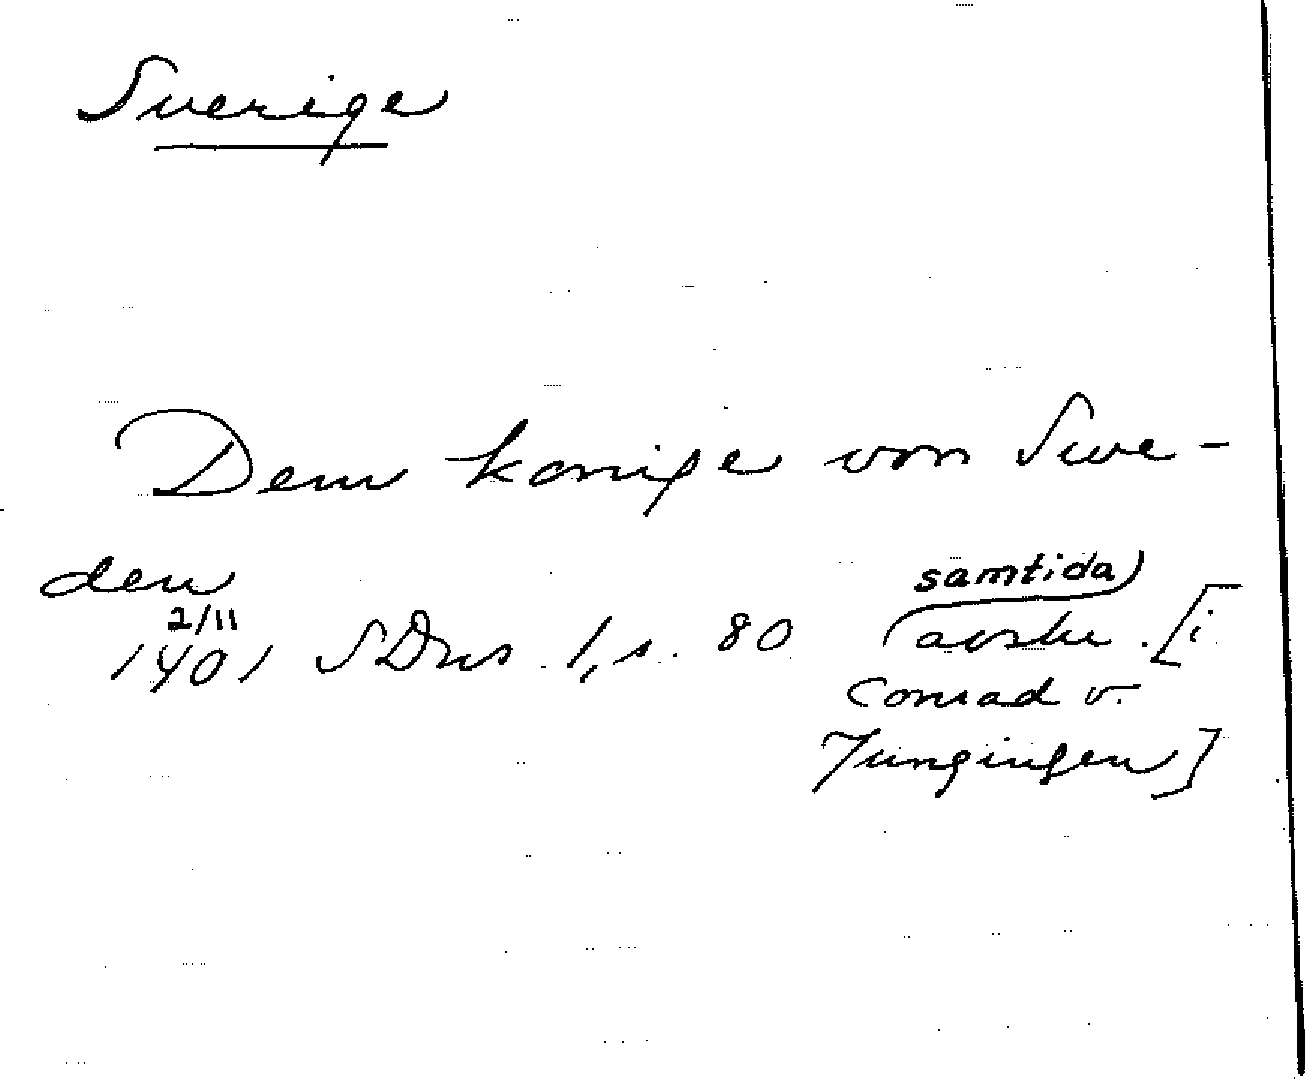 Sverige
Dem konige von Swe-
den
2/11
1401 SDns 1, s. 80 samtida avskr. [i
Conrad v.
Jungingen]